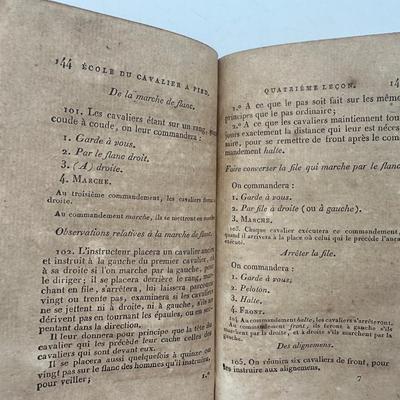 144 ÉCOLE DU CAVALIER A PIED.
De la marche de flanc.
101. Les cavaliers étant sur un rang,
coude à coude, on leur commandera :
1. Garde à vous.
2. Par le flanc droit.
3. (A) droite.
4. MARCHE.
Au troisième commandement, les cavaliers feront
à droite.
Au commandement marche, ils se mettront en marche
Observations relatives à la marche de flanc.
102. L'instructeur placera un cavalier ancien
et instruit à la gauche du premier cavalier,
à sa droite si l'on marche par la gauche, pour
le diriger; il se placera derrière le rang, mar-
chant en file, s'arrêtera, lui laissera parcourir
vingt ou trente pas, examinera si les cavaliers
ne se jettent ni à droite, ni à gauche, s'ils ne
dérivent pas en tournant les épaules, ou en se
pentant dans la direction.
Il leur donnera pour principe que la tête du
cavalier qui les précède leur cache celles des
cavaliers qui sont devant eux.
Il se placera aussi quelquefois à quinze ou
vingt pas sur le flanc des hommes qu'il instruit,
pour veiller ;
1.°
QUATRIÈME LEÇON. 14
1.° A ce que le pas soit fait sur les mêmes
principes que le pas ordinaire;
2.° A ce que les cavaliers maintiennent tou-
jours exactement la distance qui leur est néces-
saire, pour se reformer de front après le com-
mandement halte.
Faire converser la file qui marche par le flanc
On commandera :
1. Garde à vous.
2. Par file à droite (ou à gauche).
3. MARCHE.
103. Chaque cavalier exécutera ce commandement,
quand il arrivera à la place où celui qui le précède l'aura
exécuté.
Arrêter la file.
On commandera :
1. Garde à vous.
2. Peloton.
3. Halte.
4. FRONT.
104. Au commandement halte, les cavaliers s'arrêteront.
Au commandement front, ils feront à gauche s'ils
marchent par le flanc droit, et à droite s'ils marchent par
le flanc gauche.
Des alignemens.
105. On réunira six cavaliers de front, pour
les instruire aux alignemens.
7